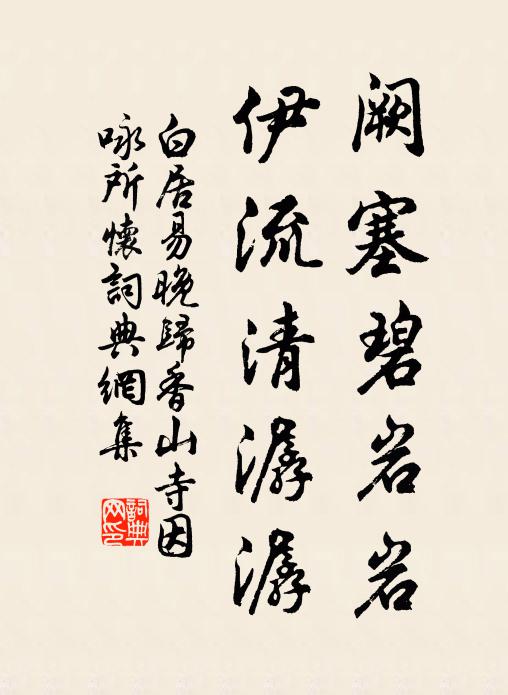 阙塞碧岩岩
伊流清潺潺
白居易晚歸香山寺因
咏所懷詞典網集
詞典
网印